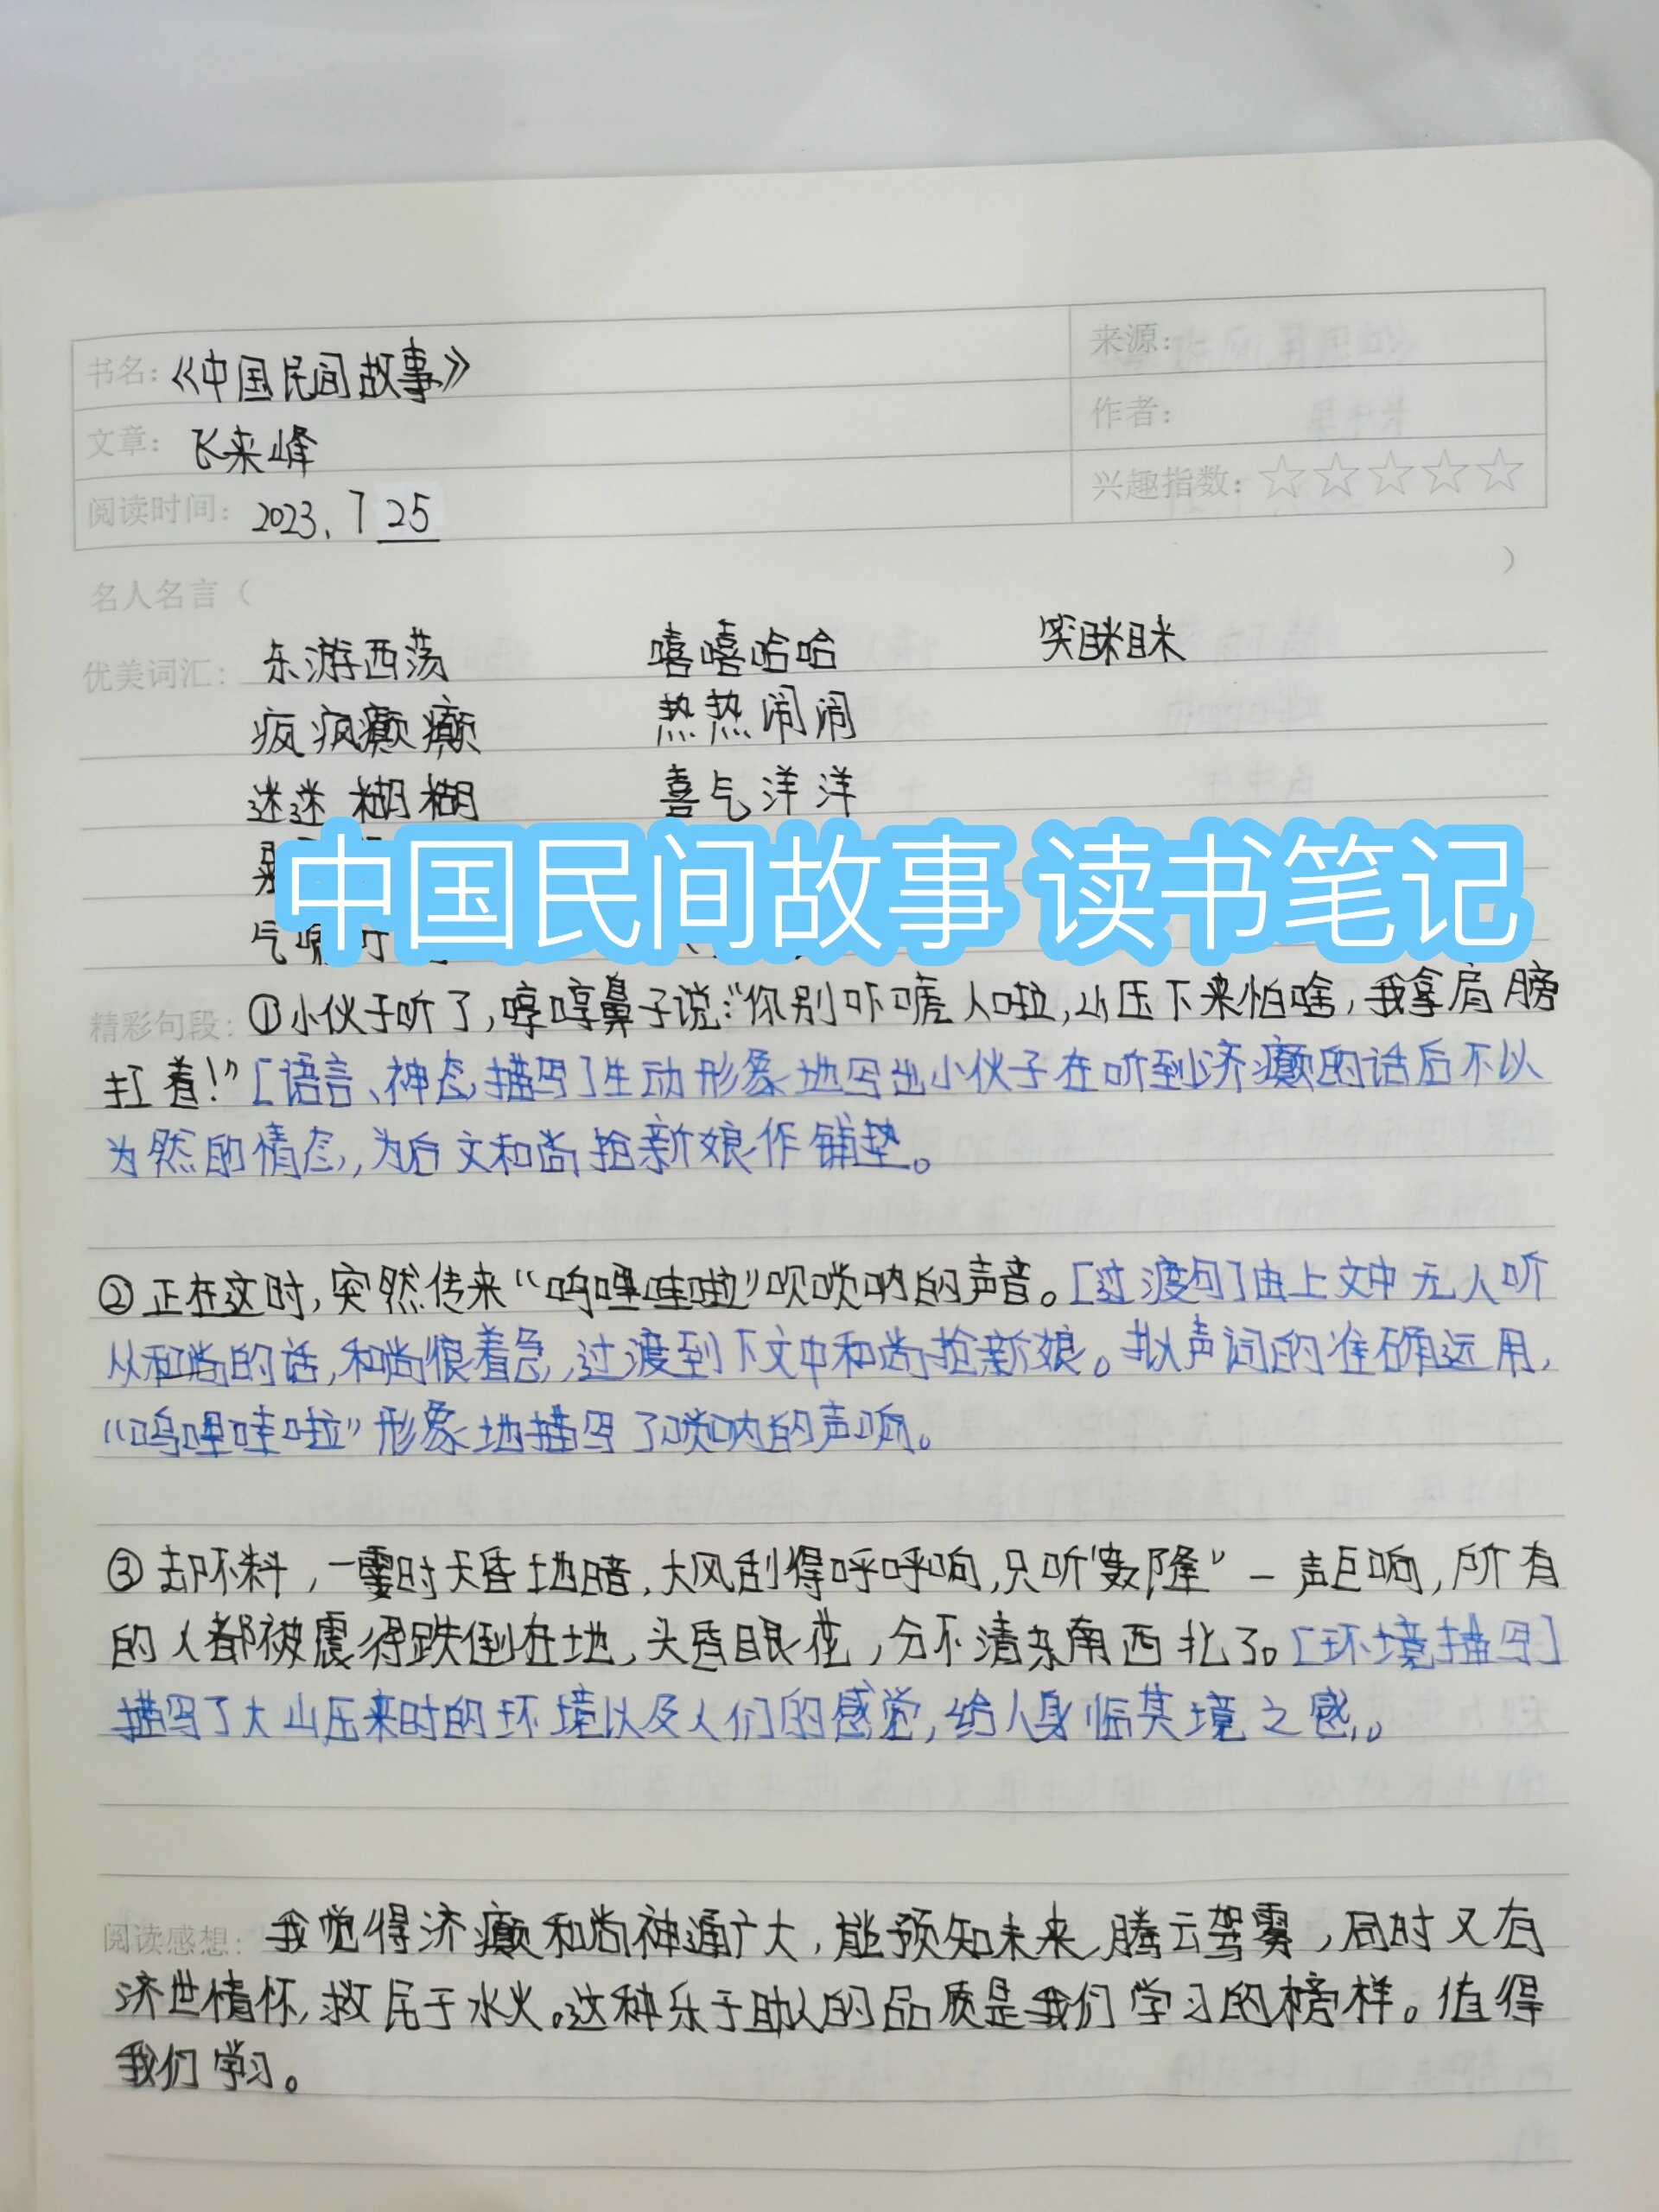 书名:《中国民间故事》
来源:
文章: 飞来峰
作者:
阅读时间: 2023. 7 25
兴趣指数: ☆☆☆☆☆
名人名言( )
优美词汇: 东游西荡 嘻嘻哈哈 笑眯眯
疯疯癫癫 热热闹闹
迷迷糊糊 喜气洋洋
中国民间故事 读书笔记
气喘吁吁
精彩句段: ①小伙子听了,哼哼鼻子说:“你别吓唬人啦,山压下来怕啥,我拿肩膀
扛着!”[语言、神态描写]生动形象地写出小伙子在听到济癫的话后不以
为然的情态,为后文和尚抢新娘作铺垫。
②正在这时,突然传来“呜哩哇啦”吹唢呐的声音。[过渡句]由上文中无人听
从和尚的话,和尚很着急,过渡到下文中和尚抢新娘。拟声词的准确运用,
“呜哩哇啦”形象地描写了唢呐的声响。
③却不料,一霎时天昏地暗,大风刮得呼呼响,只听“轰隆”一声巨响,所有
的人都被震得跌倒在地,头昏眼花,分不清东南西北了。[环境描写]
描写了大山压来时的环境以及人们的感觉,给人身临其境之感。
阅读感想: 我觉得济癫和尚神通广大,能预知未来,腾云驾雾,同时又有
济世情怀,救民于水火。这种乐于助人的品质是我们学习的榜样。值得
我们学习。